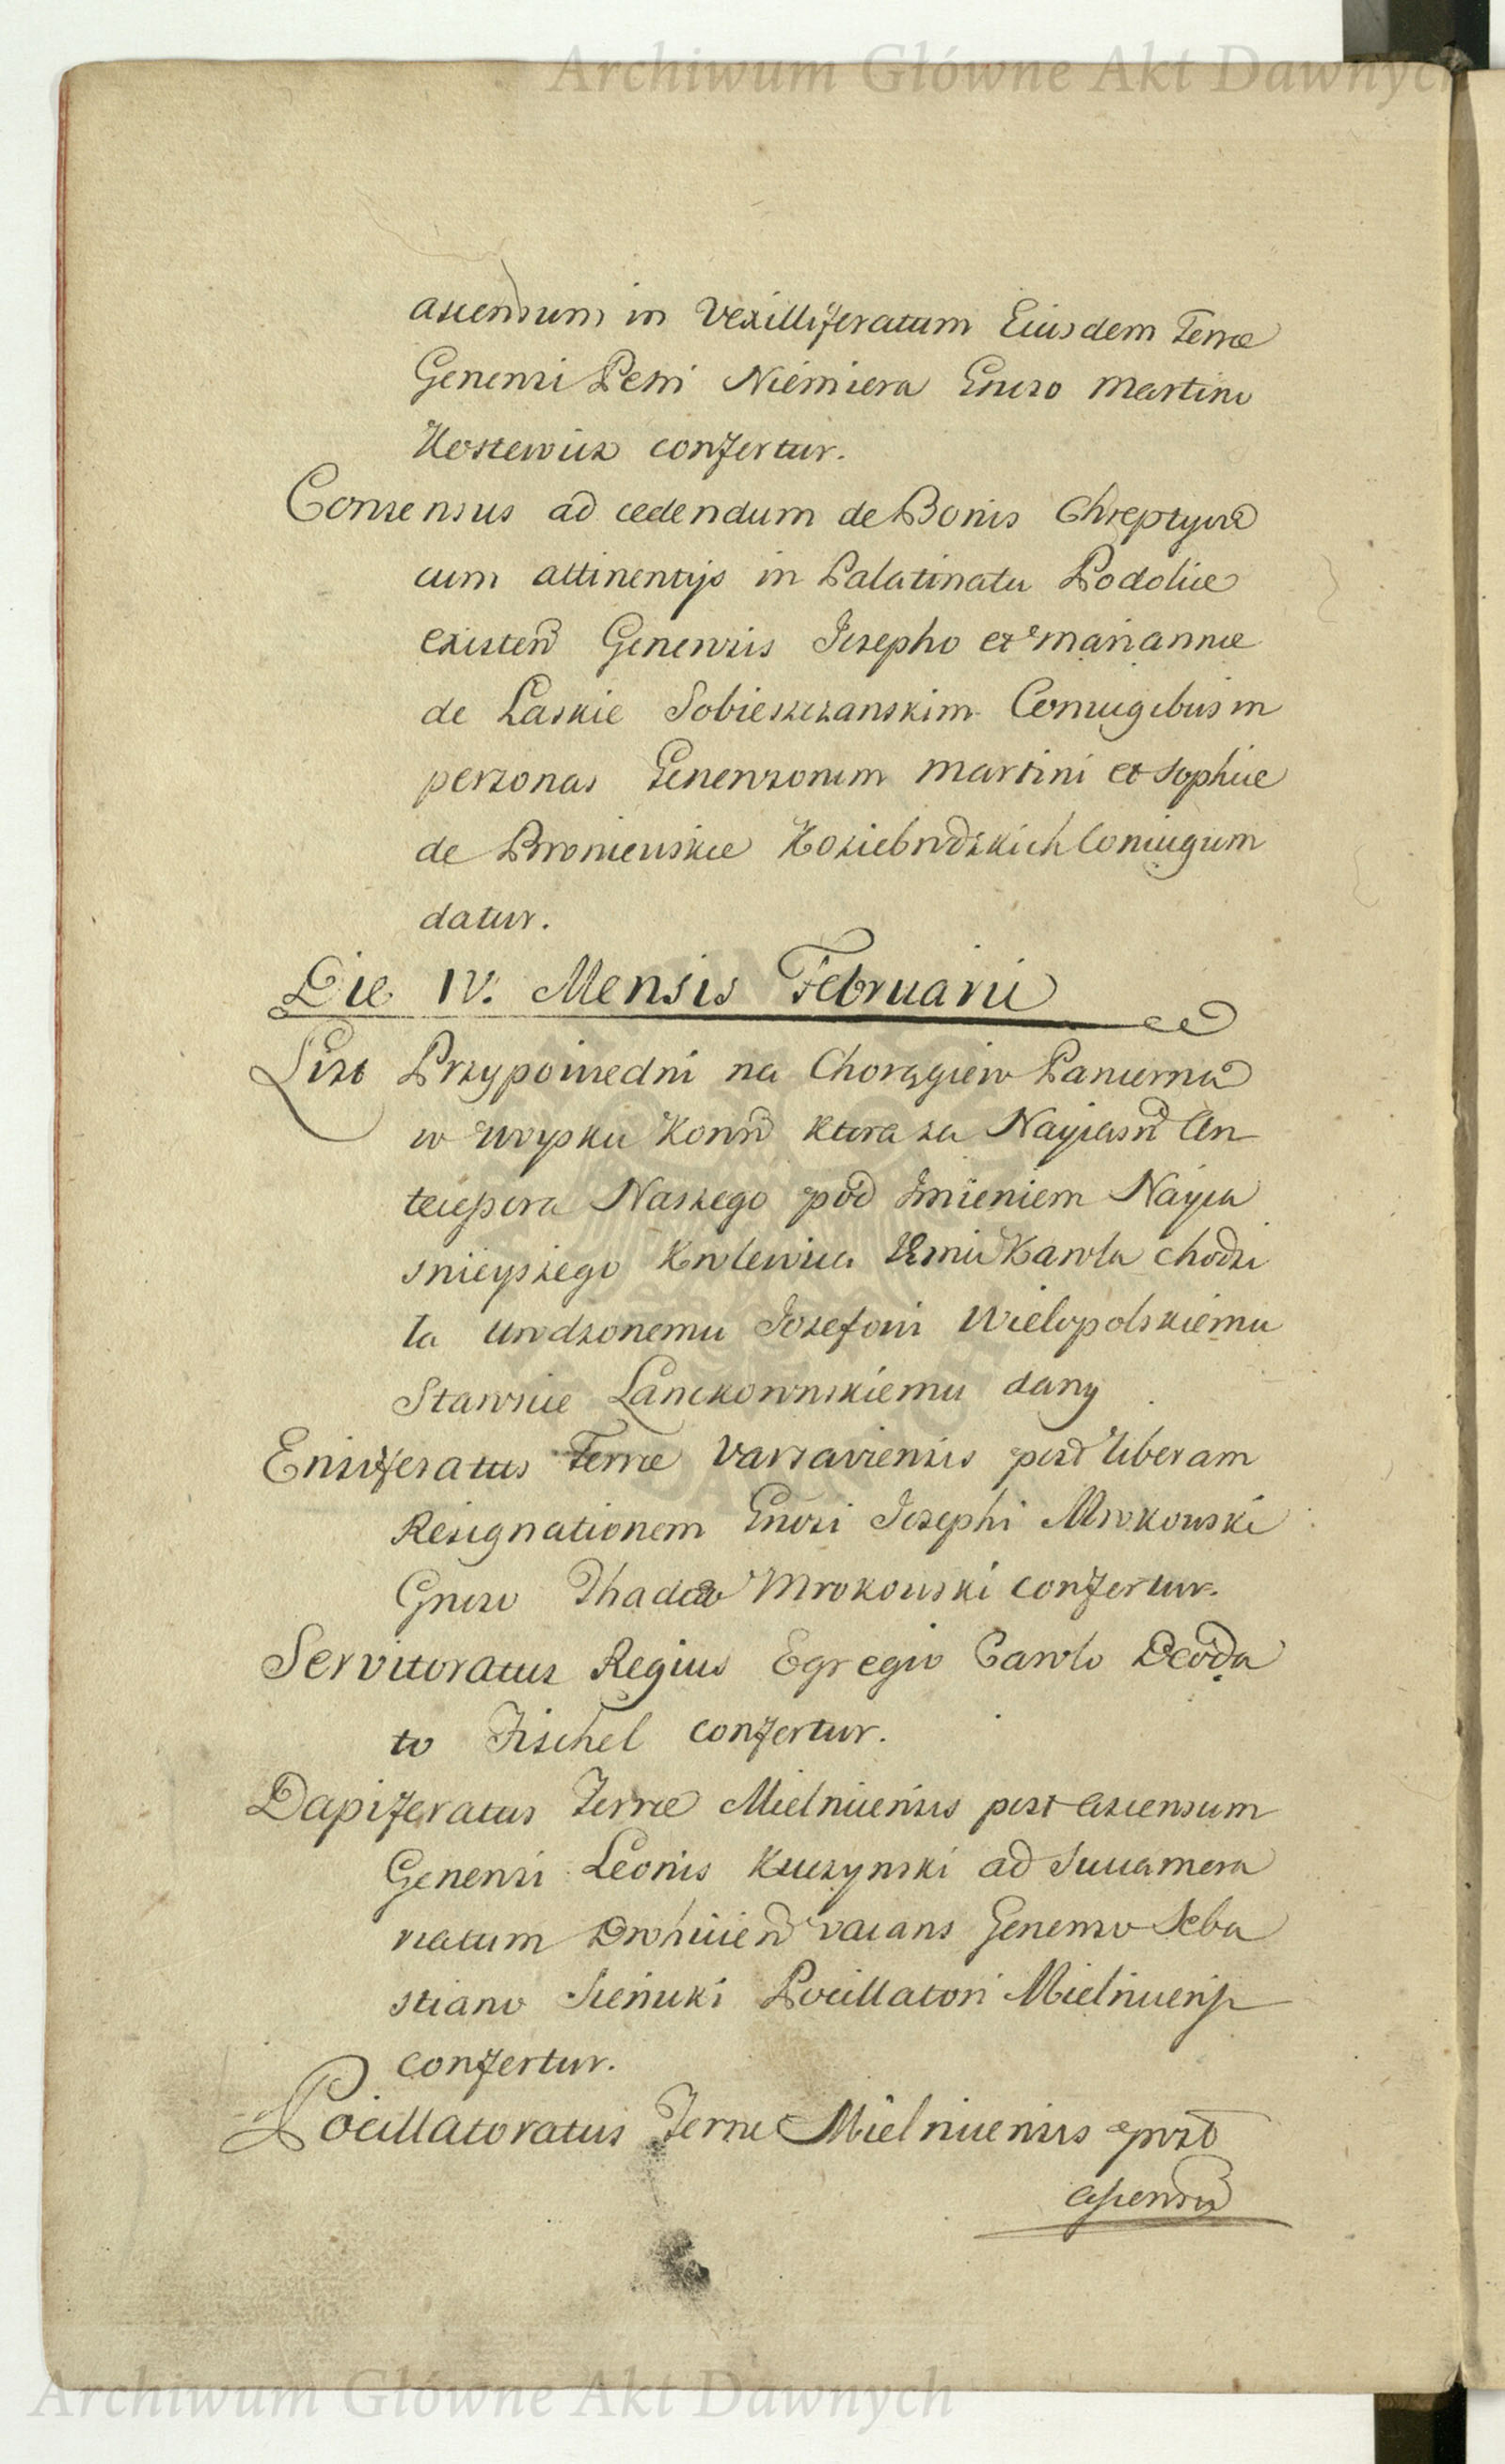 Archiwum Główne Akt Dawnych
ascensum in Vexilliferatum Eiusdem Terræ
Generosi Petri Niemiera Gnroso Martino
Kostewicz confertur.
Consensus ad cedendum de Bonis Chreptyow
cum attinentijs in Palatinatu Podoliæ
existen Generosis Josepho et Mariannæ
de Laskie Sobieszczanskim Coniugibus in
personas Generosorum Martini et Sophiæ
de Broniewskie Koziebrodzkich Coniugum
datur.
Die IV. Mensis Februarii
List Przypowiedni na Chorągiew Pancerną
w woysku Konn ktora za Nayiasn An
tecessora Naszego pod Imieniem Nayia
snieyszego Krolewica Karola chodzi
la urodzonemu Jozefowi Wielopolskiemu
Staroscie Lanckoronskiemu dany
Ensiferatus Terræ Varsaviensis post liberam
Resignationem Gnosi Josephi Mrokowski
Gnoso Thadeo Mrokowski confertur.
Servitoratus Regius Egregio Carolo Deoda
to Fischel confertur.
Dapiferatus Terræ Mielnicensis post ascensum
Generosi Leonis Kuczynski ad Succamera
riatum Drohicien vacans Generoso Seba
stiano Sienicki Pocillatori Mielnicensi
confertur.
Pocillatoratus Terræ Mielnicensis post
ascensu
Archiwum Główne Akt Dawnych